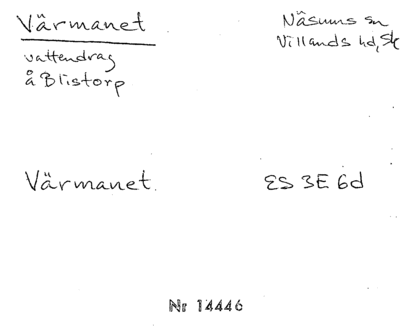 Värmanet
vattendrag
å Blistorp
Näsums sn
Villands hd, Sk
Värmanet.
ES 3E 6d
Nr 14446